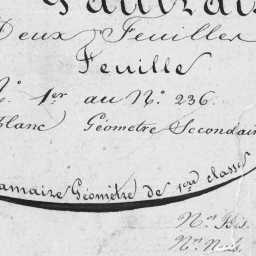 Deux Feuilles
Feuille
N.º 1.er au N.º 236.
Blanc Géometre Secondair
amaize Géométre de 1ere classe